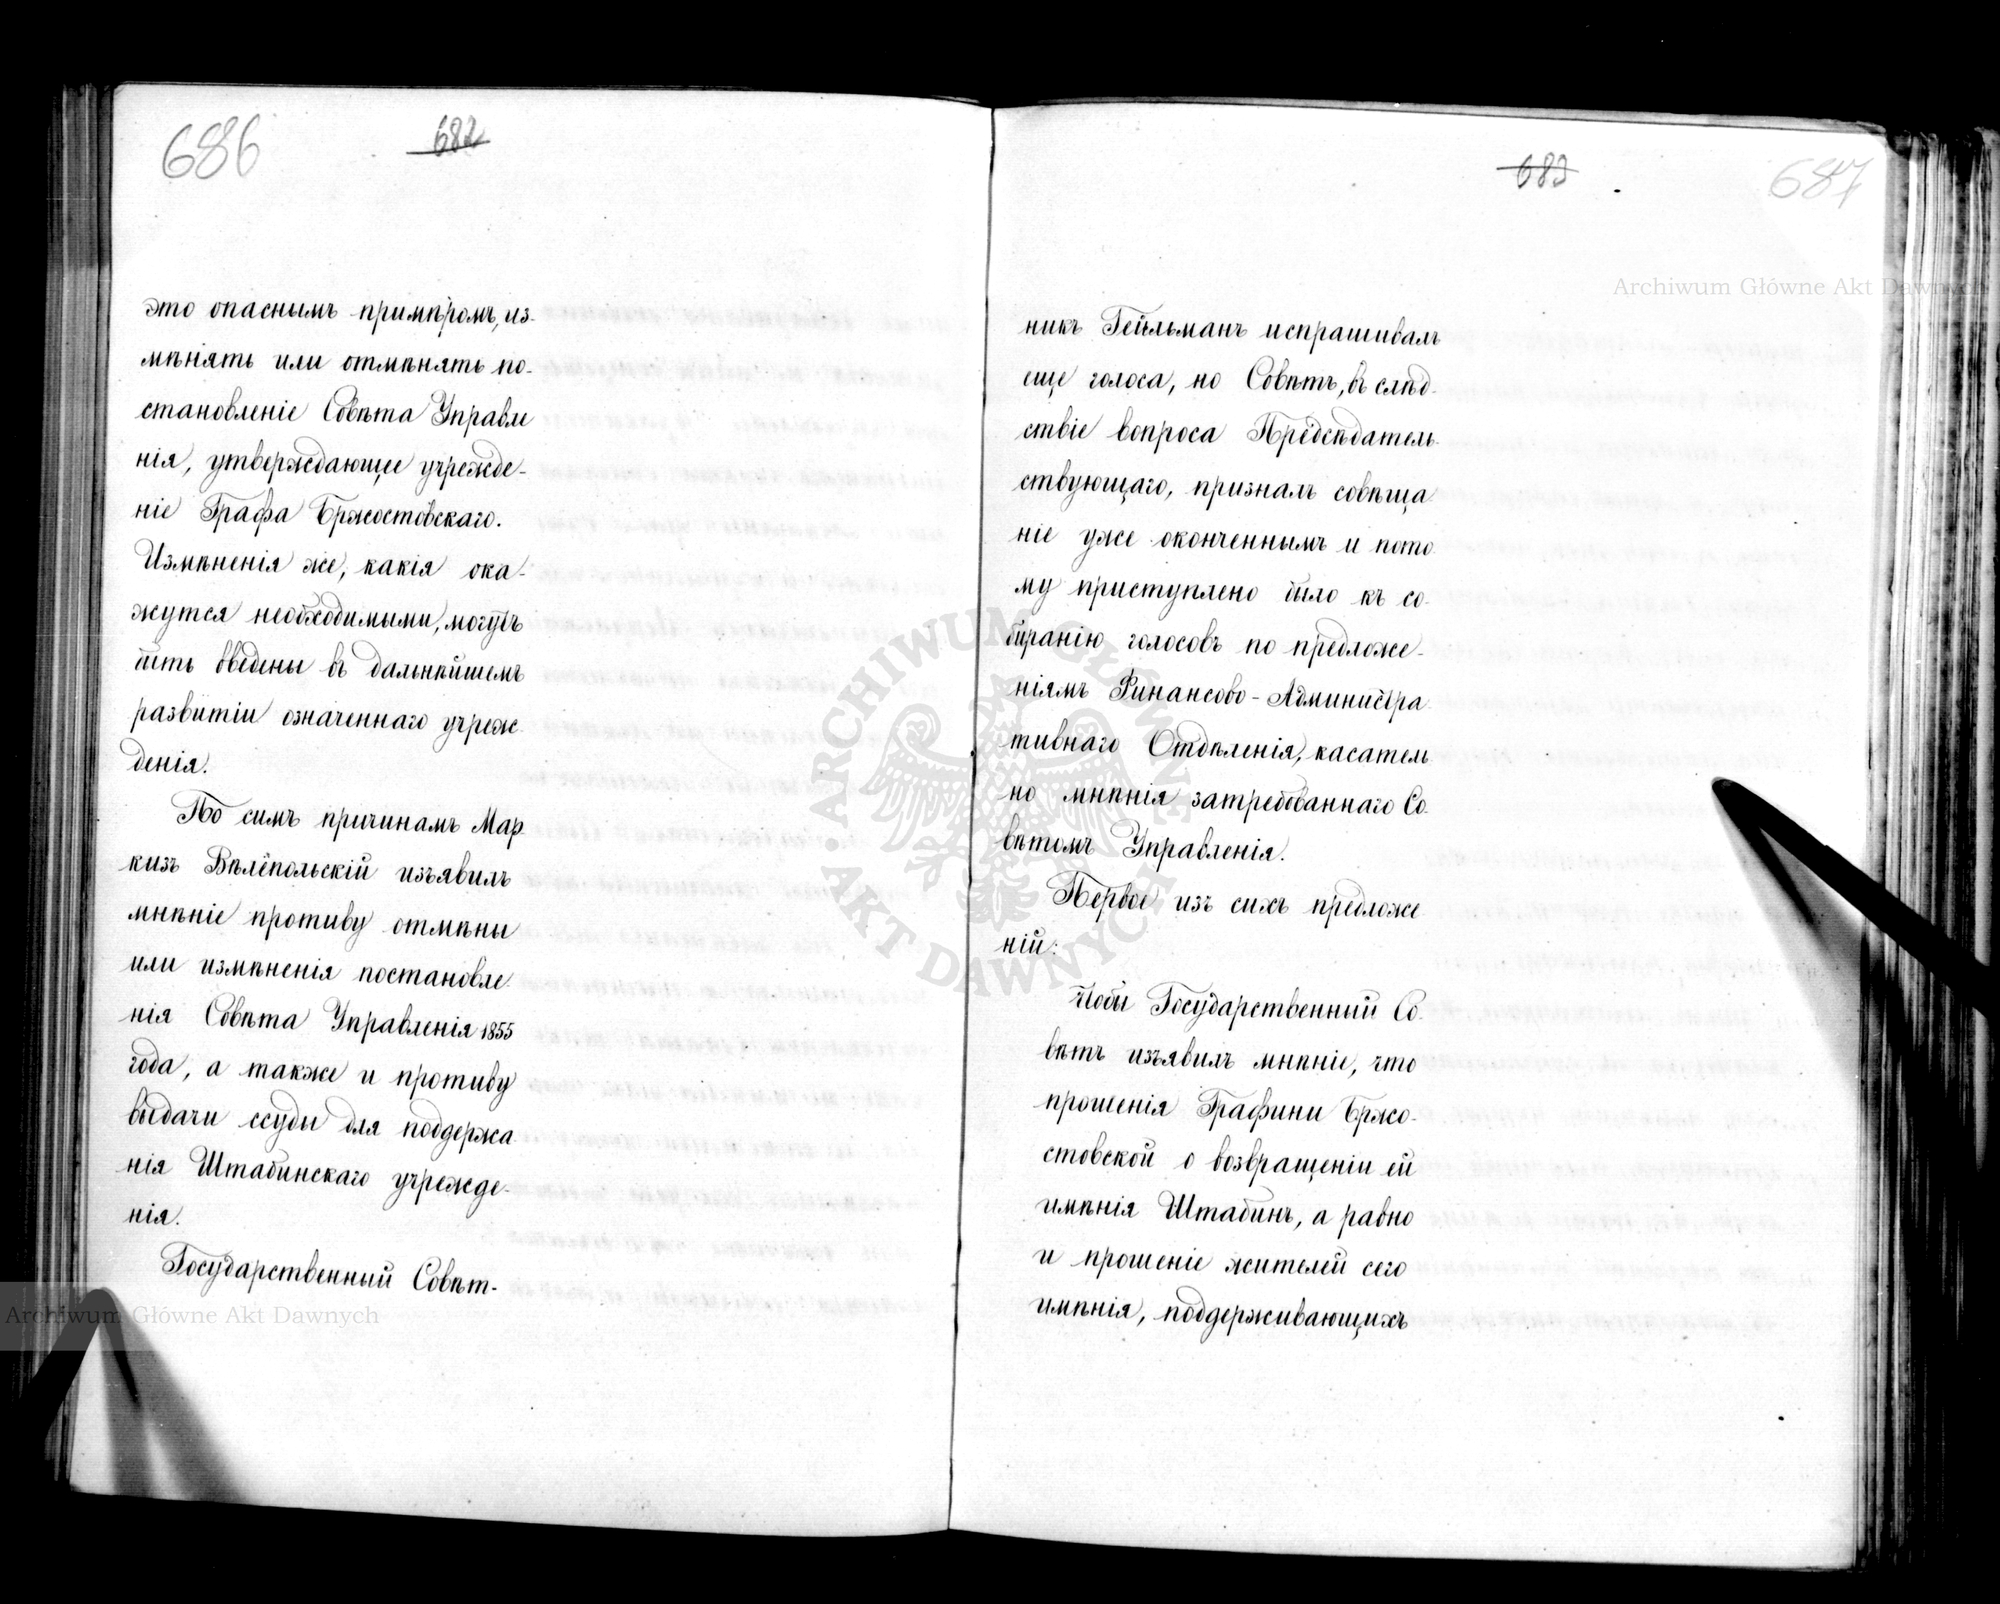 686
682
это опаснымъ примѣромъ, из-
мѣнять или отмѣнять по-
становленіе Совѣта Управле
нія, утверждающее учрежде-
ніе Графа Бржостовскаго.
Измѣненія же, какія ока-
жутся необходимыми, могутъ
быть введены въ дальнѣйшемъ
развитіи означеннаго учреж
денія.
По симъ причинамъ Мар
кизъ Вѣлёпольскій изъявилъ
мнѣніе противу отмѣны
или измѣненія постановле
нія Совѣта Управленія 1855
года, а также и противу
выдачи ссуды для поддержа
нія Штабинскаго учрежде-
нія.
Государственный Совѣт-
683
687
никъ Гейльманъ испрашивалъ
еще голоса, но Совѣтъ, въ слѣд-
ствіе вопроса Предсѣдатель-
ствующаго, призналъ совѣща
ніе уже оконченнымъ и пото
му приступлено было къ со-
биранію голосовъ по предложе-
ніямъ Финансово-Администра
тивнаго Отдѣленія, касатель
но мнѣнія затребованнаго Со-
вѣтомъ Управленія.
Первое изъ сихъ предложе
ній:
Чтобы Государственный Со-
вѣтъ изъявилъ мнѣніе, что
прошенія Графини Бржо-
стовской о возвращеніи ей
имѣнія Штабинъ, а равно
и прошеніе жителей сего
имѣнія, поддерживающихъ
Archiwum Główne Akt Dawnych
ARCHIWUM GŁÓWNE AKT DAWNYCH
Archiwum Główne Akt Dawnych